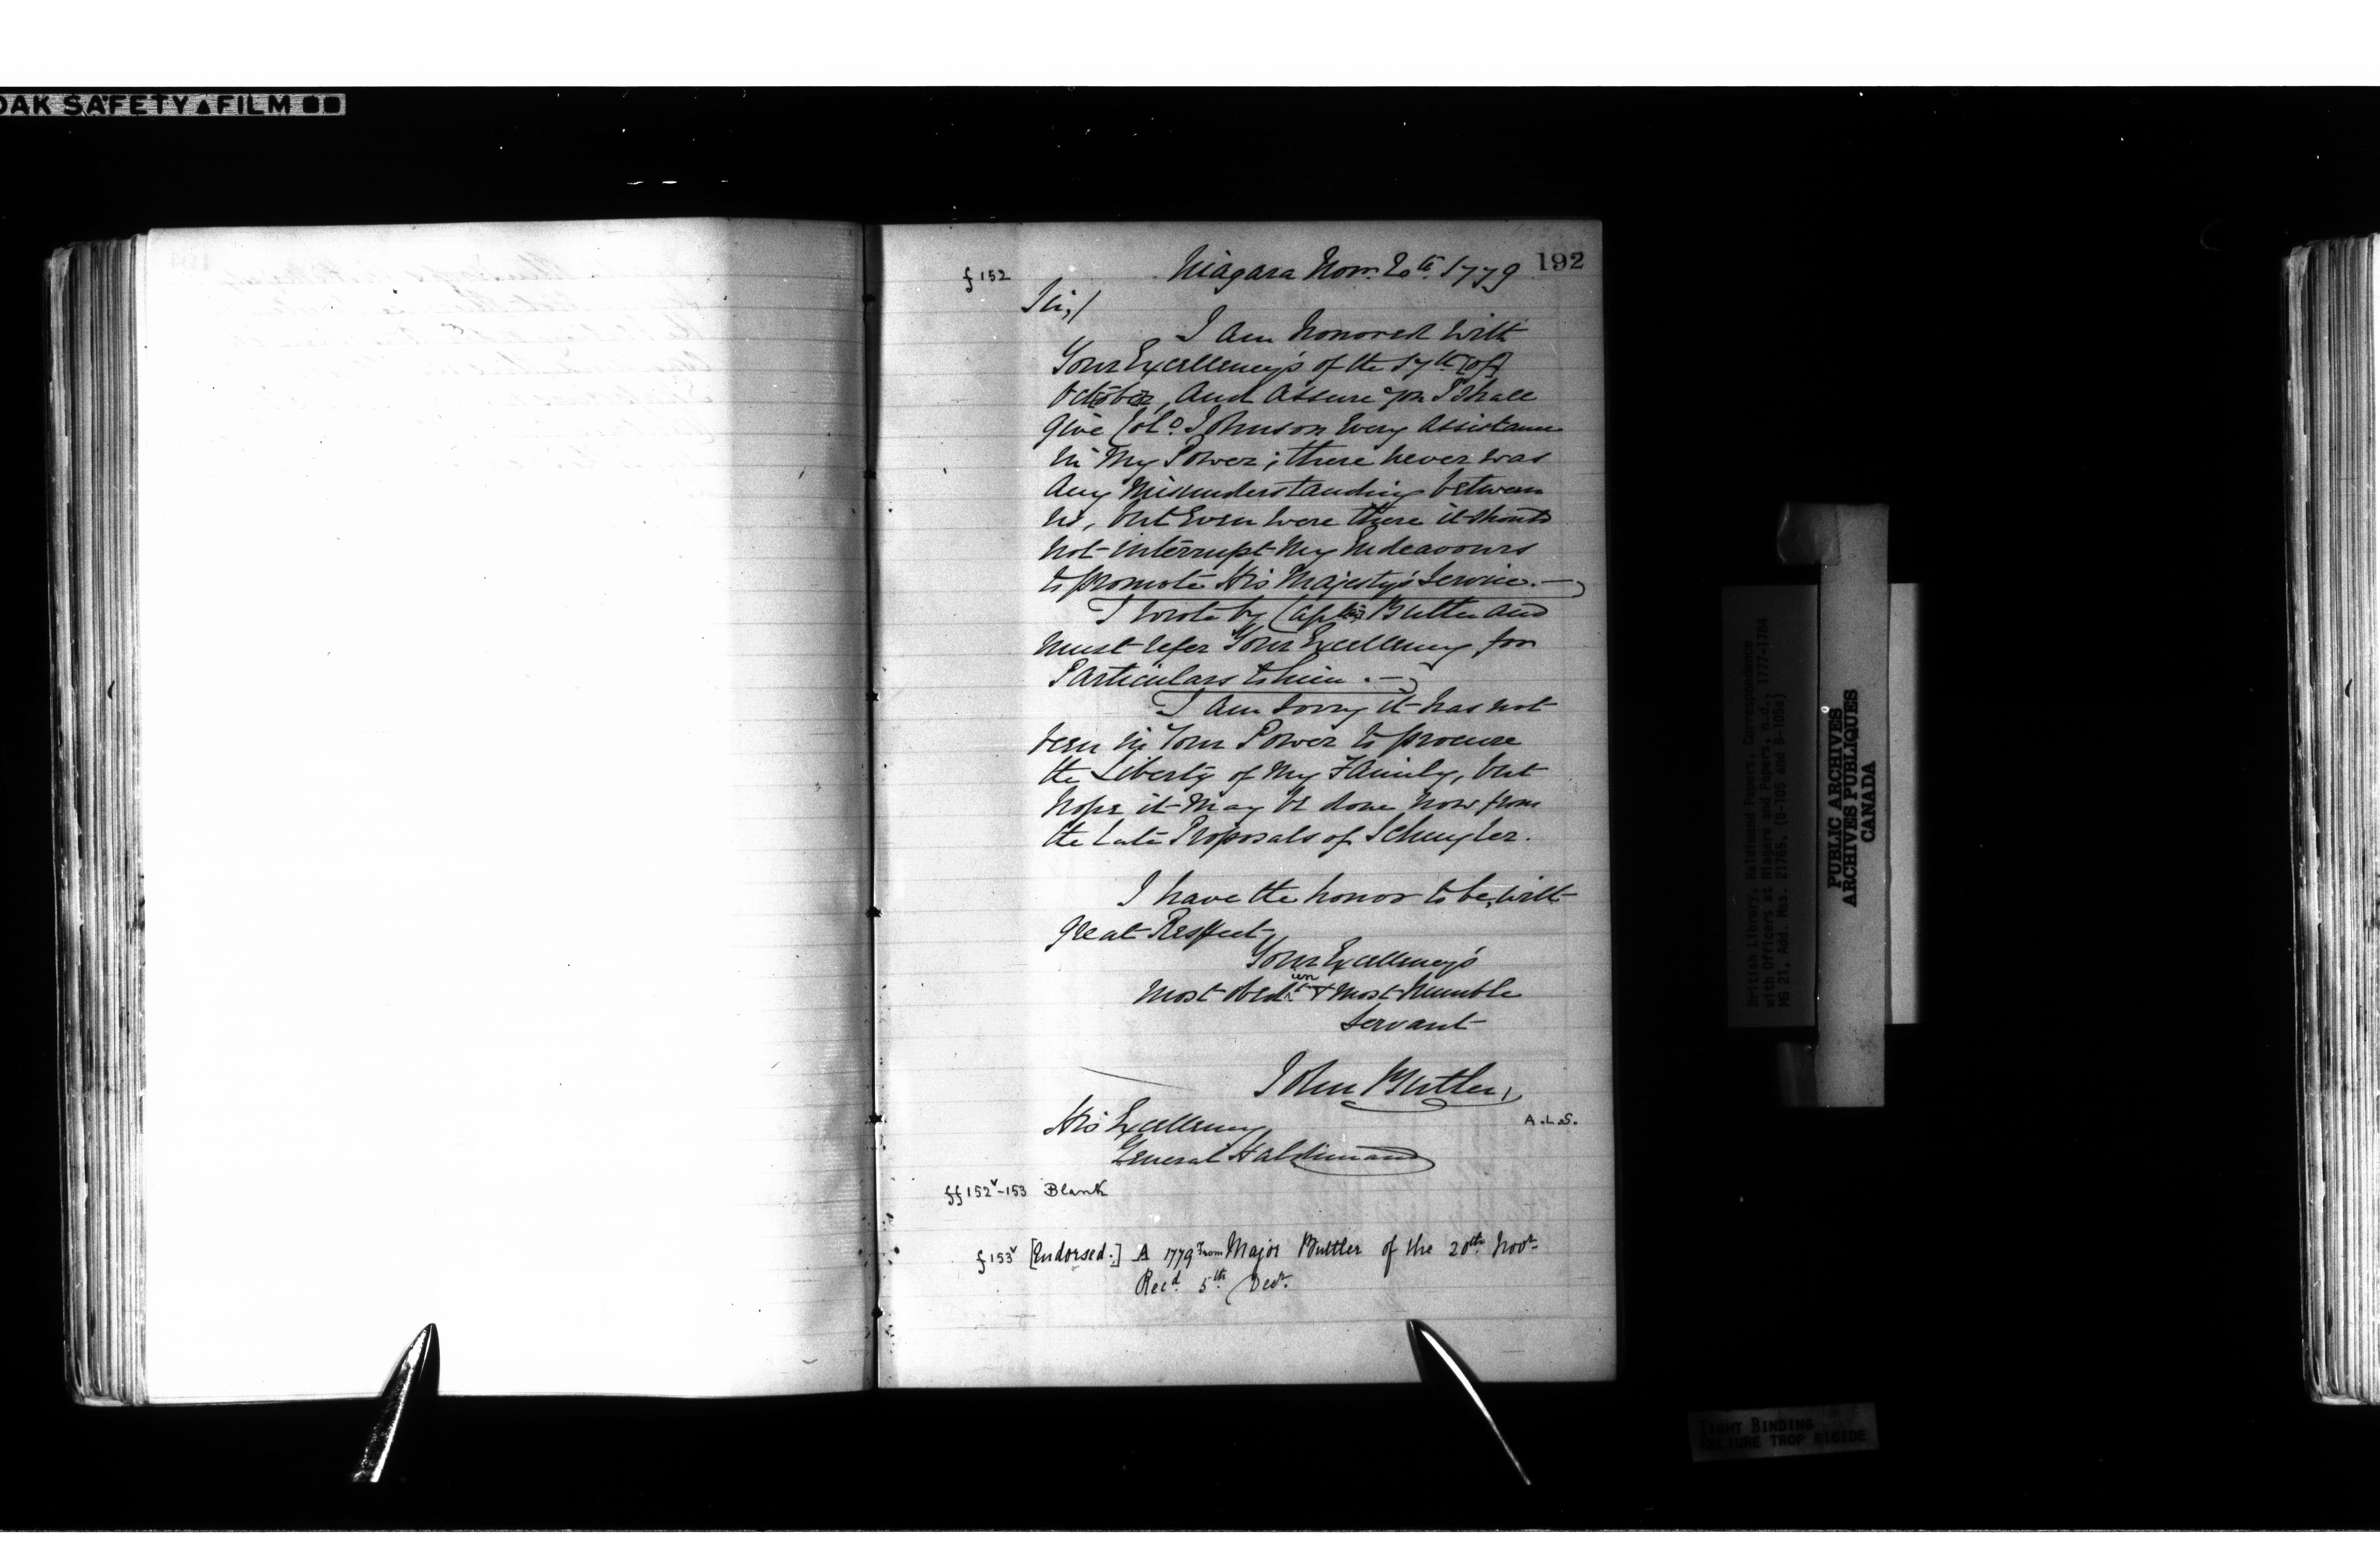 DAK SAFETY▲FILM ●●
192
f 152
Niagara Novr. 20th. 1779
Sir,/
I am honored with
Your Excellency's of the 17th [of]
October, and assure you I shall
give Colo. Johnson every assistance
in my Power; there never was
any misunderstanding between
us, but even were there it should
not interrupt my Endeavours
to promote His Majesty's Service.—
I wrote by Captain Butler and
must refer Your Excellency for
Particulars to him.—
I am sorry it has not
been in Your Power to procure
the Liberty of my Family, but
hope it may be done now from
the late Proposals of Schuyler.
I have the honor to be, with
great Respect
Your Excellency's
most obedient & most humble
Servant
John Butler,
A.L.S.
His Excellency
General Haldimand
ff 152v-153 Blank
f 153v [Endorsed.] A 1779 From Major Buttler of the 20th Novr.
Recd. 5th Decr.
British Library, Haldimand Papers, Correspondence
with Officers at Niagara and Papers, n.d., 1777-1784
MG 21, Add. Mss. 21765, (B-105 and B-105a)
PUBLIC ARCHIVES
ARCHIVES PUBLIQUES
CANADA
TIGHT BINDING
RELIURE TROP RIGIDE